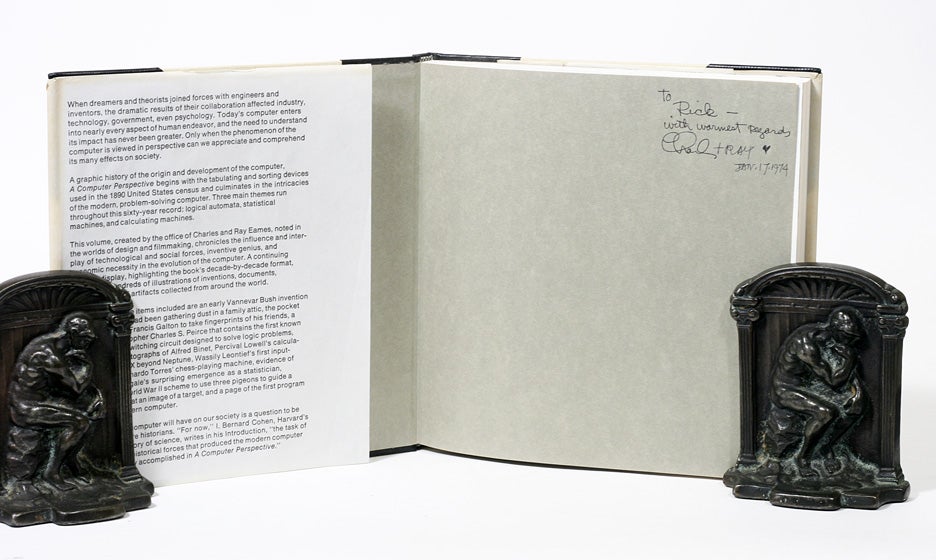 When dreamers and theorists joined forces with engineers and
inventors, the dramatic results of their collaboration affected industry,
technology, government, even psychology. Today's computer enters
into nearly every aspect of human endeavor, and the need to understand
its impact has never been greater. Only when the phenomenon of the
computer is viewed in perspective can we appreciate and comprehend
its many effects on society.
A graphic history of the origin and development of the computer,
A Computer Perspective begins with the tabulating and sorting devices
used in the 1890 United States census and culminates in the intricacies
of the modern, problem-solving computer. Three main themes run
throughout this sixty-year record: logical automata, statistical
machines, and calculating machines.
This volume, created by the office of Charles and Ray Eames, noted in
the worlds of design and filmmaking, chronicles the influence and inter-
play of technological and social forces, inventive genius, and
omic necessity in the evolution of the computer. A continuing
display, highlighting the book's decade-by-decade format,
ndreds of illustrations of inventions, documents,
artifacts collected from around the world.
items included are an early Vannevar Bush invention
ad been gathering dust in a family attic, the pocket
Francis Galton to take fingerprints of his friends, a
opher Charles S. Peirce that contains the first known
witching circuit designed to solve logic problems,
tographs of Alfred Binet, Percival Lowell's calcula-
X beyond Neptune, Wassily Leontief's first input-
nardo Torres' chess-playing machine, evidence of
gale's surprising emergence as a statistician,
orld War II scheme to use three pigeons to guide a
at an image of a target, and a page of the first program
ern computer.
omputer will have on our society is a question to be
e historians. "For now," I. Bernard Cohen, Harvard's
ory of science, writes in his Introduction, "the task of
istorical forces that produced the modern computer
y accomplished in A Computer Perspective."
to
Rick —
with warmest regards
+ RAY
JAN. 17 1974